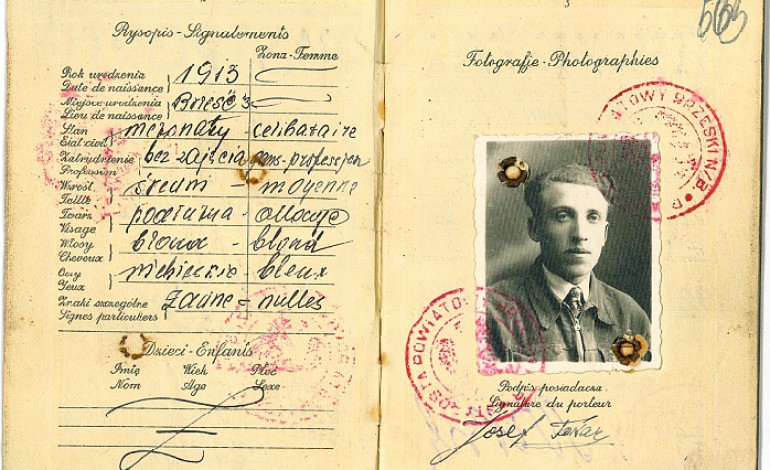 Rysopis - Signalements
Żona - Femme
Rok urodzenia
Date de naissance
1913
Miejsce urodzenia
Lieu de naissance
Brześć
Stan
Etat civil
nieżonaty - celibataire
Zatrudnienie
Profession
bez zajęcia sans-profession
Wzrost
Taille
średni - moyenne
Twarz
Visage
Włosy
Cheveux
blond - blond
Oczy
Yeux
niebieskie - bleux
Znaki szczególne
Signes particuliers
żadne = nulles
Dzieci - Enfants
Imię Wiek Płeć
Nom Age Sexe
5
565
Fotografje - Photographies
POWIATOWY BRZESKI N/B
STAROSTA POWIATOWY
Podpis posiadacza
Signature du porteur
Josef